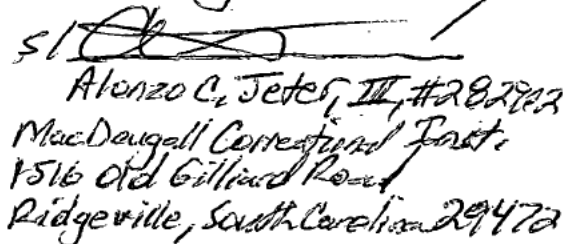 s/
Alonzo C. Jeter, III, #282922
MacDougall Correctional Inst.
1516 Old Gilliard Road
Ridgeville, South Carolina 29472